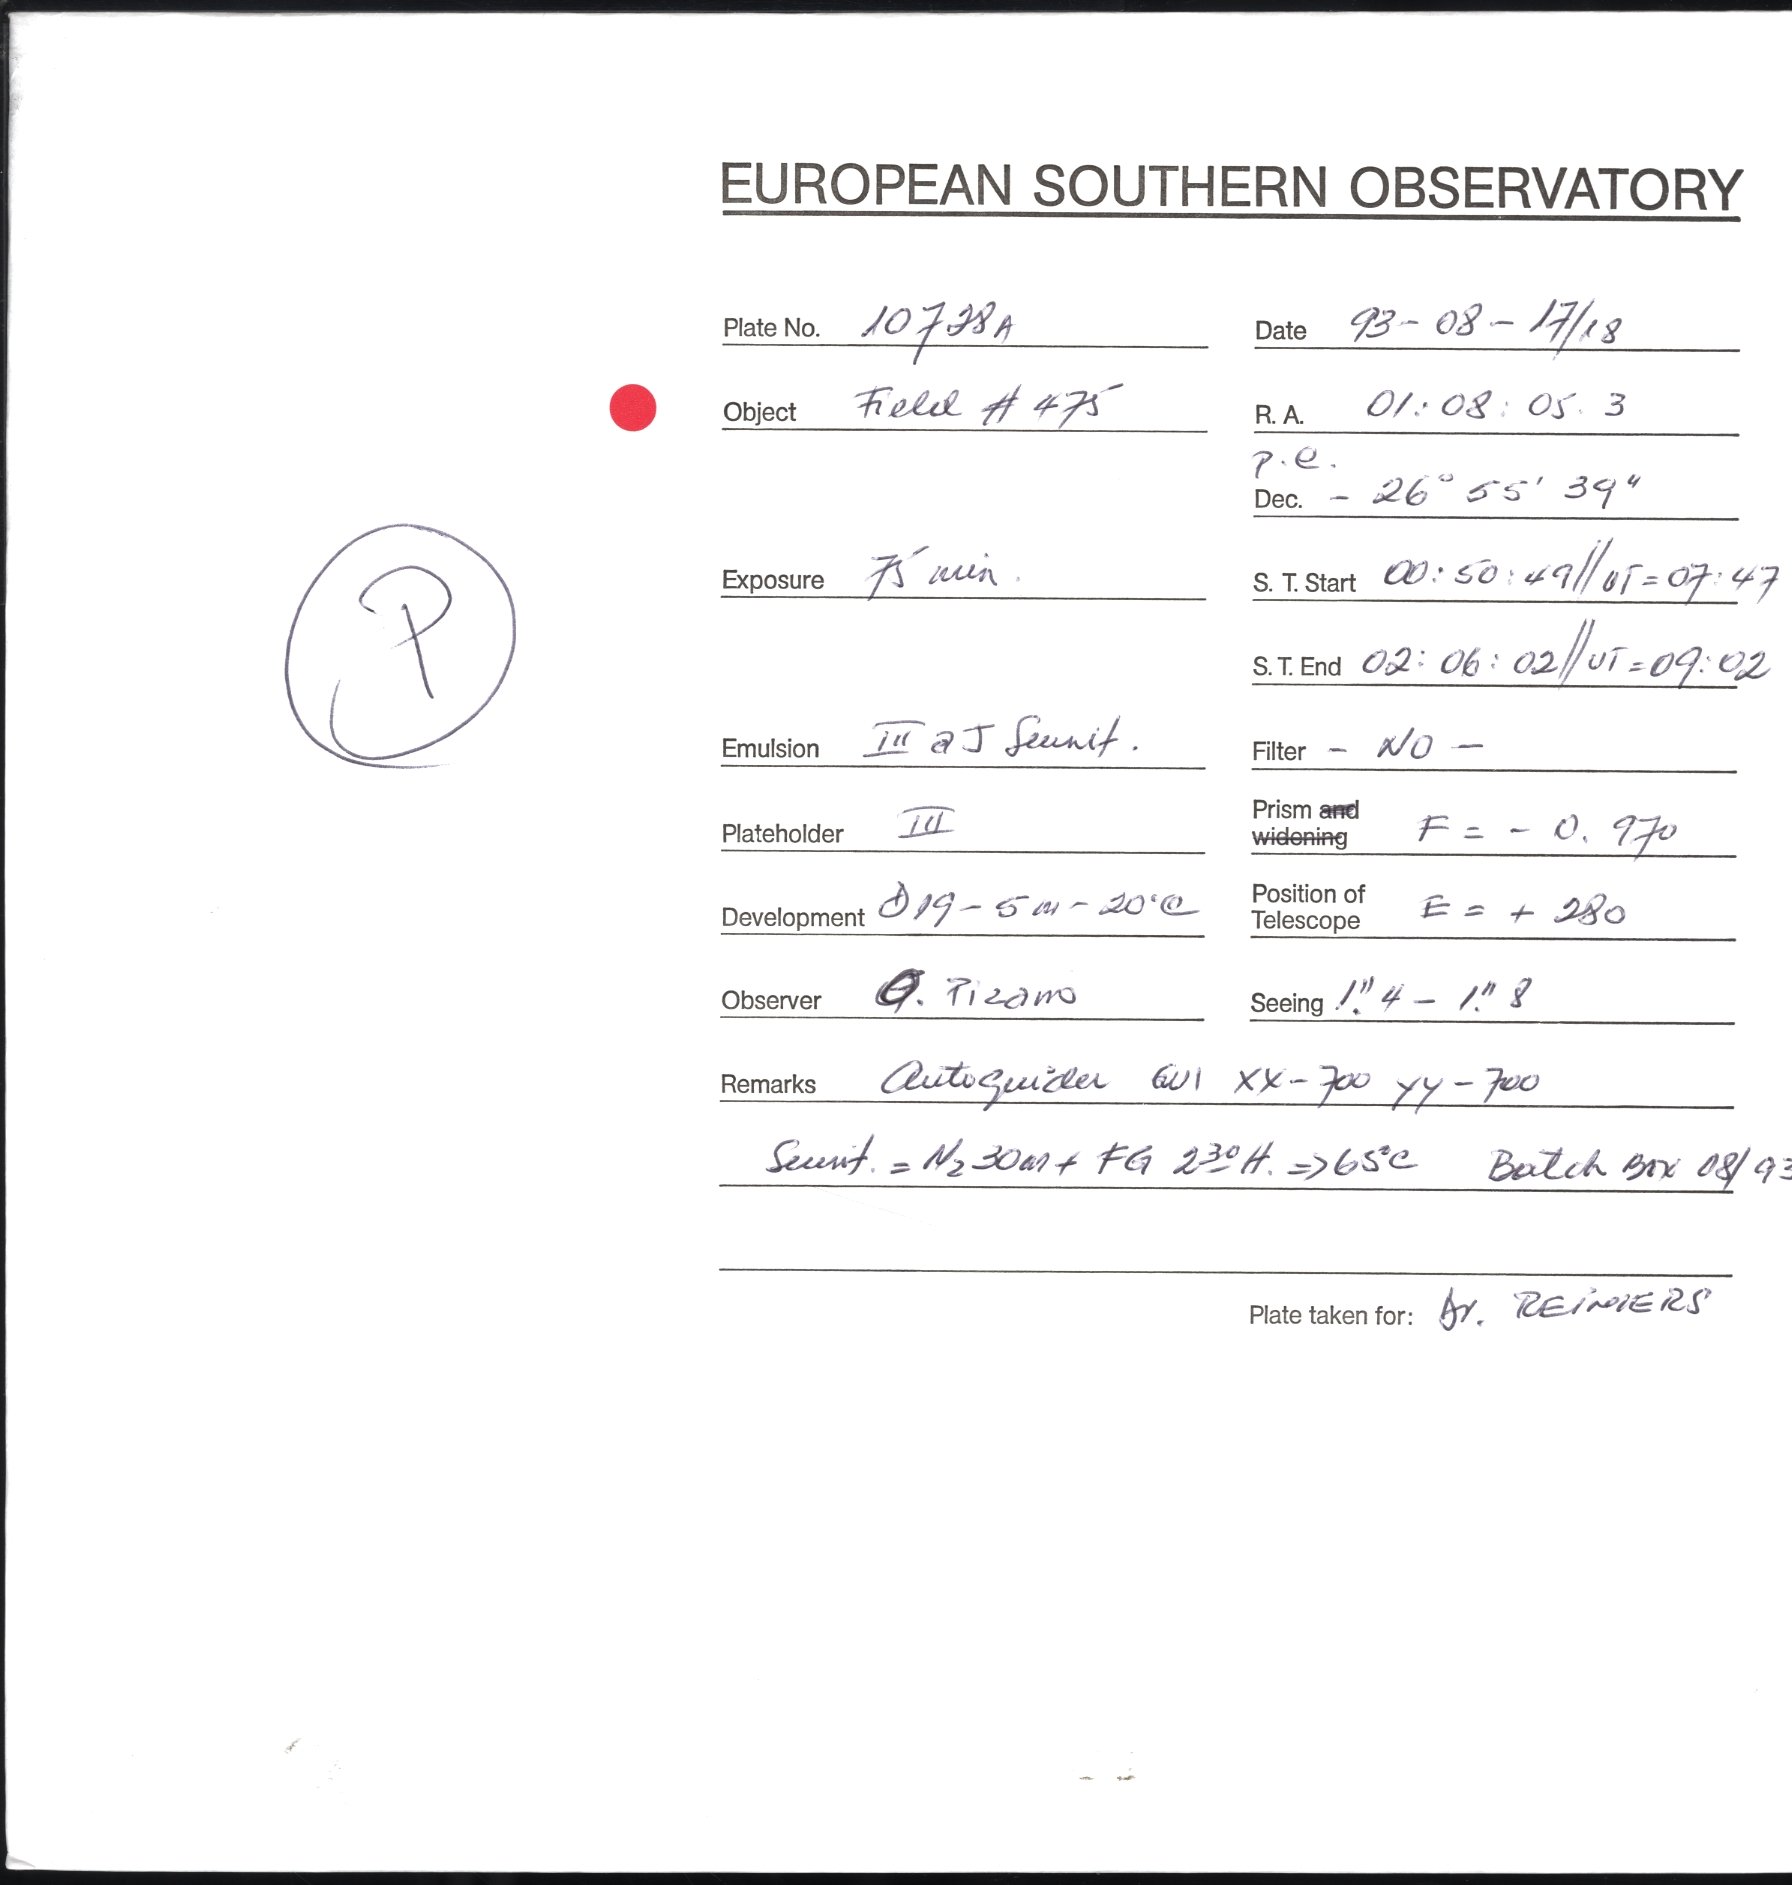 EUROPEAN SOUTHERN OBSERVATORY
Plate No. 10738A Date 93-08-17/18
Object Field # 475 R. A. 01:08:05.3
p.e.
Dec. - 26° 55' 39"
P
Exposure 75 min. S. T. Start 00:50:49//UT=07:47
S. T. End 02:06:02//UT=09:02
Emulsion III aJ Sensit. Filter - NO -
Plateholder III Prism and widening F = - 0.970
Development D19-5m-20°C Position of Telescope E = + 280
Observer O. Pizarro Seeing 1."4 - 1."8
Remarks Autoguider GUI XX-700 YY-700
Sensit. = N2 30m + FG 230 H. => 65°C Batch Box 08/93
Plate taken for: Dr. REIMERS